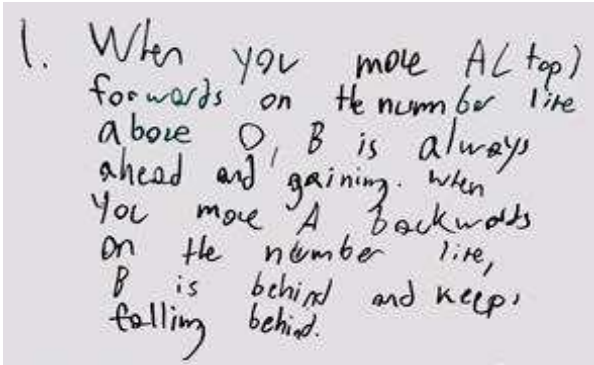 1. When you move A(top)
forwards on the number line
above 0, B is always
ahead and gaining. When
you move A backwards
on the number line,
B is behind and keeps
falling behind.